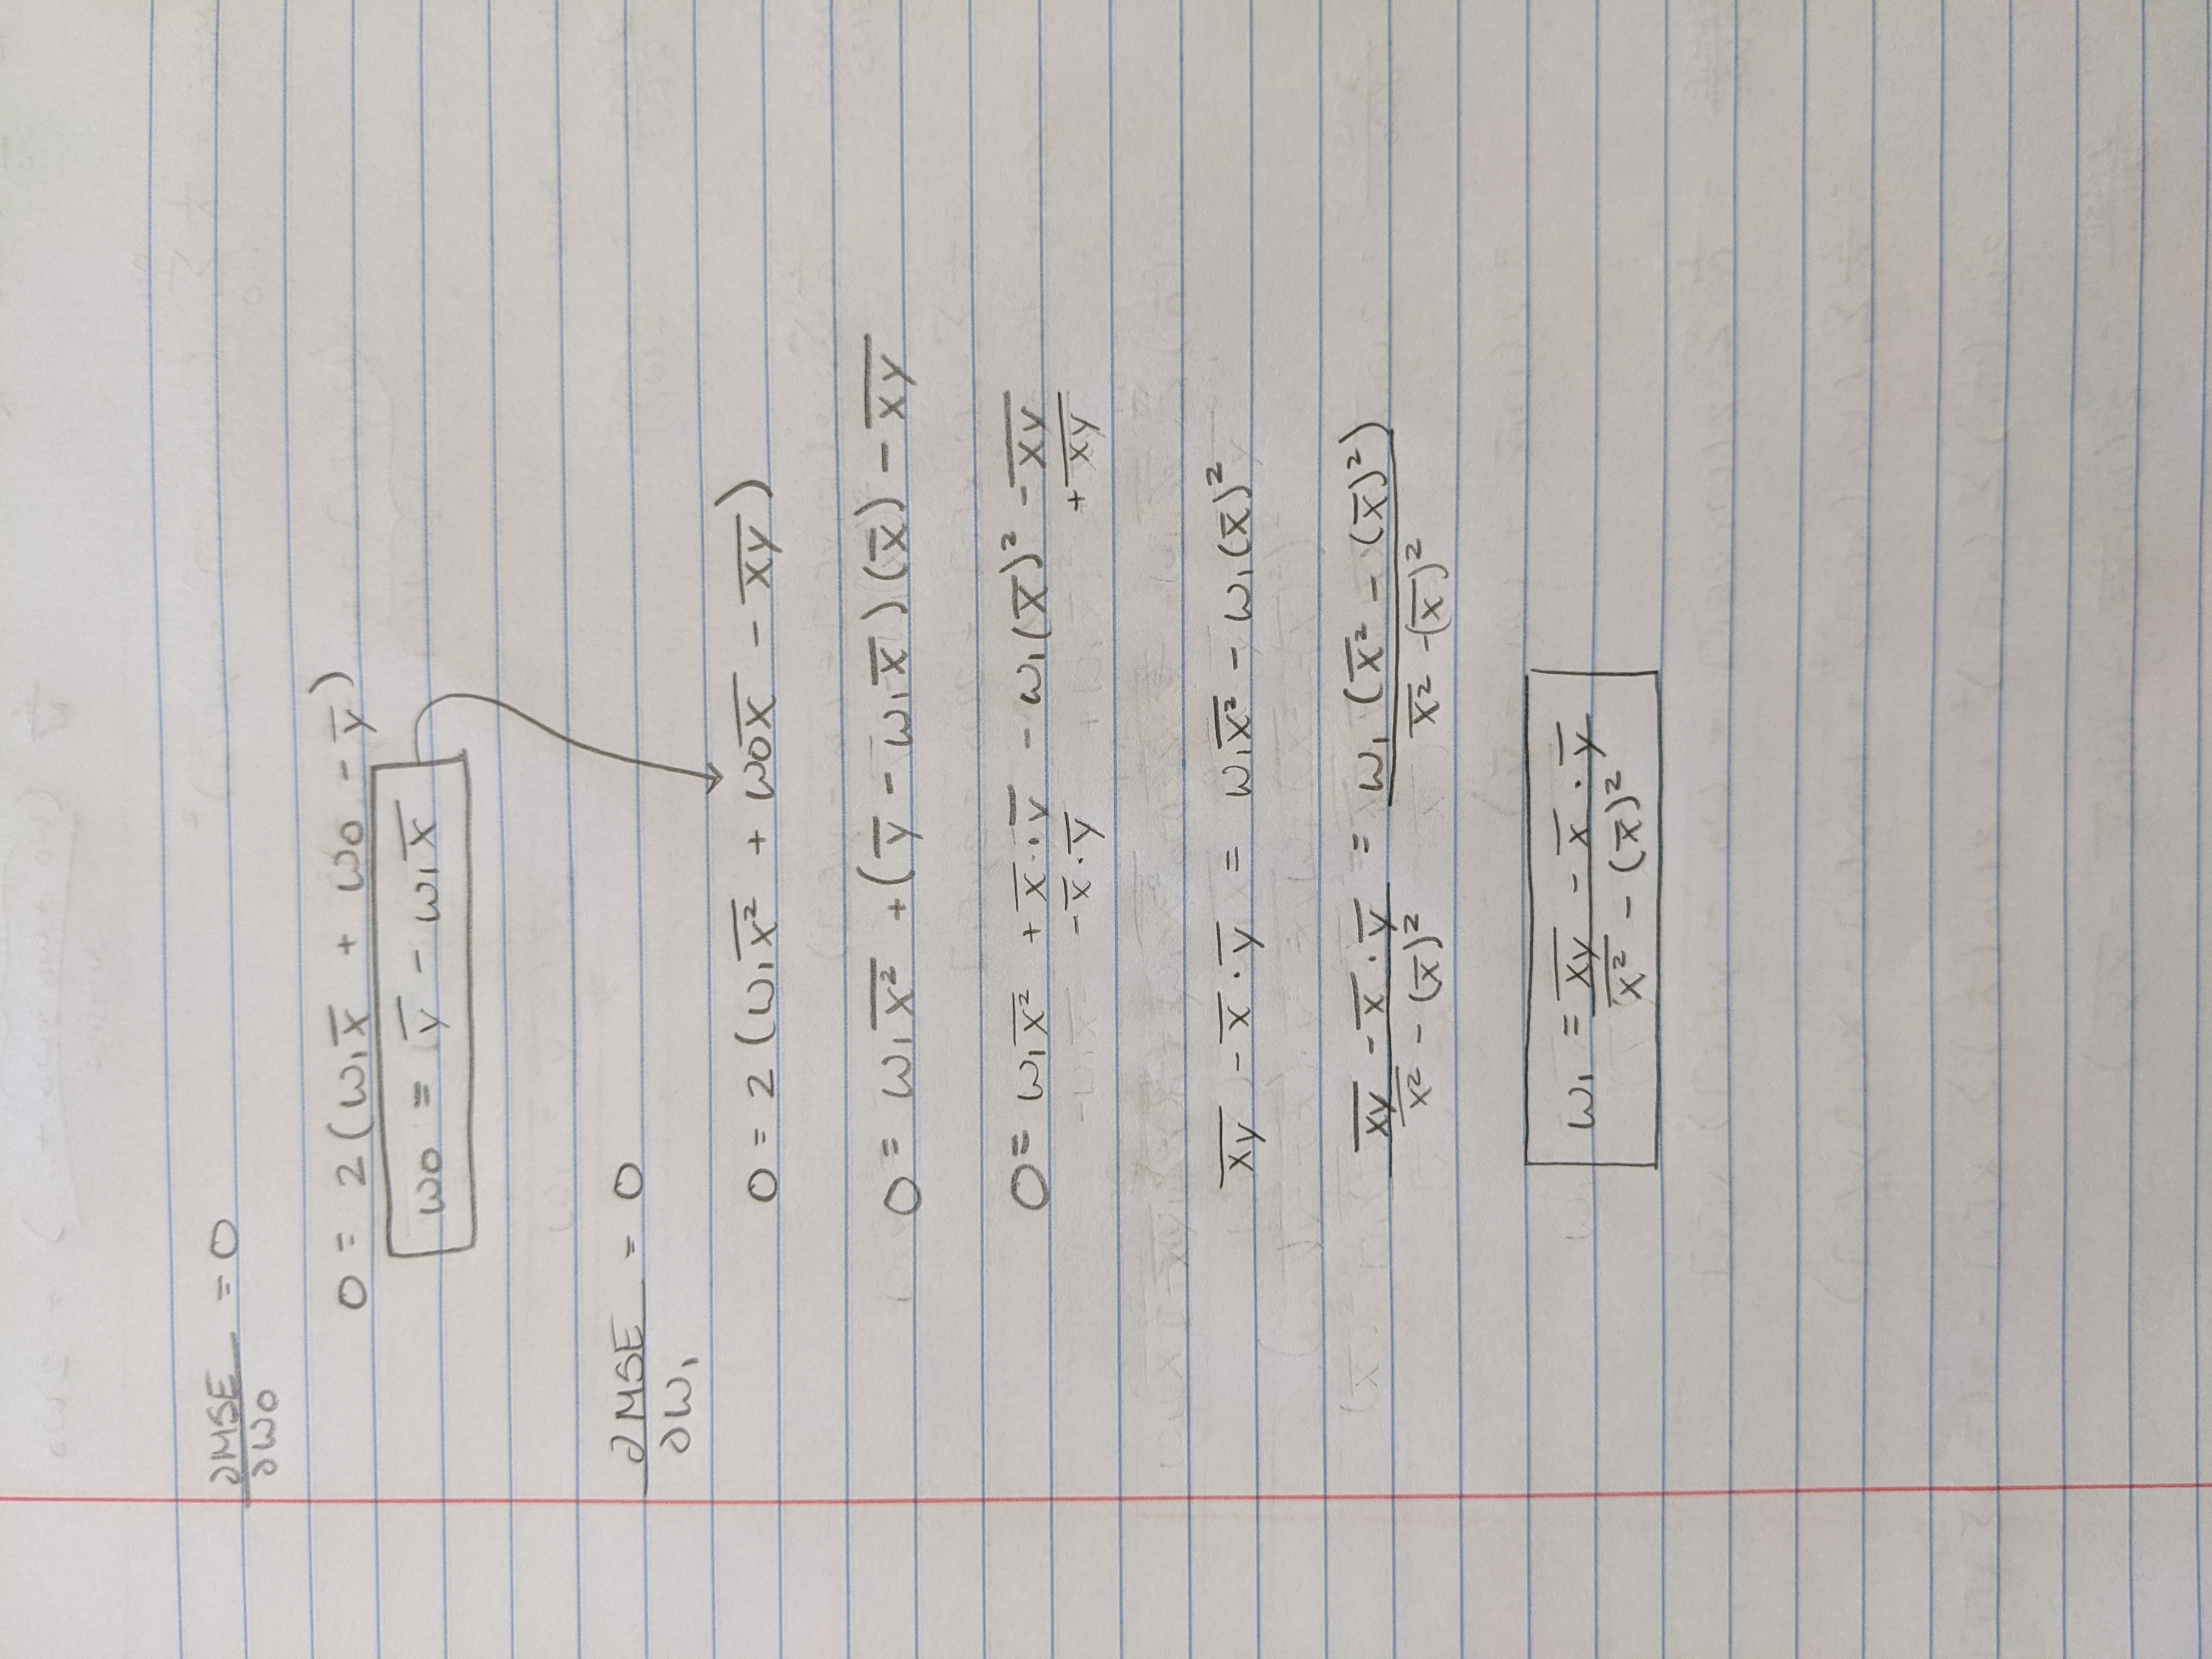 ∂MSE/∂w0 = 0
0 = 2(w₁x̅ + w0 - y̅)
w0 = y̅ - w₁x̅
∂MSE/∂w₁ = 0
0 = 2(w₁\overline{x²} + w0x̅ - \overline{xy})
0 = w₁\overline{x²} + (y̅ - w₁x̅)(x̅) - \overline{xy}
0 = w₁\overline{x²} + x̅·y̅ - w₁(x̅)² - \overline{xy}
- x̅·y̅ + \overline{xy}
\overline{xy} - x̅·y̅ = w₁\overline{x²} - w₁(x̅)²
(\overline{xy} - x̅·y̅)/(\overline{x²} - (x̅)²) = w₁(\overline{x²} - (x̅)²)/(\overline{x²} - (x̅)²)
w₁ = (\overline{xy} - x̅·y̅)/(\overline{x²} - (x̅)²)